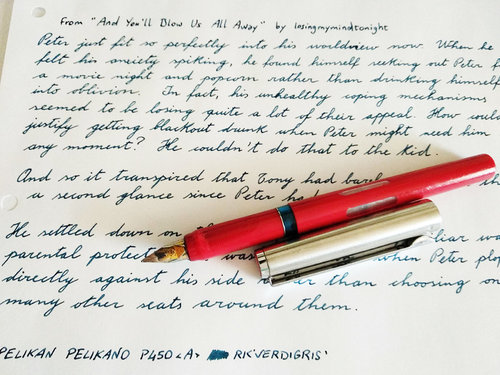 From "And You'll Blow Us All Away" by losingmymindtonight
Peter just fit so perfectly into his worldview now. When he
felt his anxiety spiking, he found himself seeking out Peter f
a movie night and popcorn rather than drinking himself
into oblivion. In fact, his unhealthy coping mechanisms
seemed to be losing quite a lot of their appeal. How would
justify getting blackout drunk when Peter might need him
any moment? He couldn't do that to the kid.
And so it transpired that Tony had
a second glance since Peter
He settled down on
parental was when Peter
directly against his side than choosing on
many other seats around them.
PELIKAN PELIKANO P450 <A> RK 'VERDIGRIS'